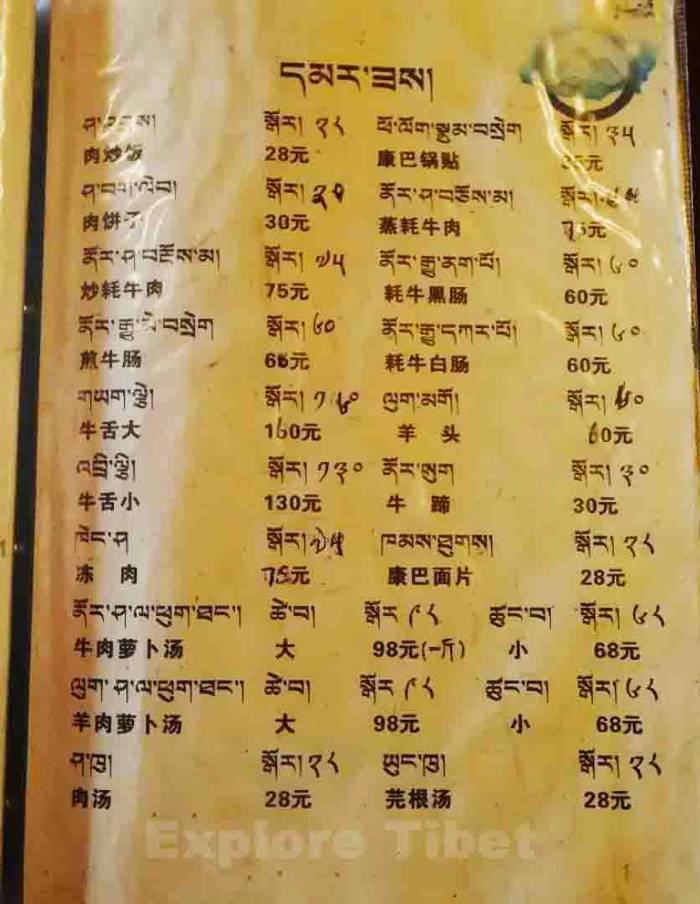 དམར་ཟས།
ཤ་འབྲས། སྒོར། ༢༨ ཕོ་ལོག་སྣུམ་བསྲེག སྒོར། ༣༥
肉炒饭 28元 康巴锅贴 35元
ཤ་བག་ལེབ། སྒོར། ༣༠ ནོར་ཤ་བཙོས་མ། སྒོར།
肉饼子 30元 蒸耗牛肉 75元
ནོར་ཤ་བརྔོས་མ། སྒོར། ༧༥ ནོར་རྒྱུ་ནག་པོ། སྒོར། ༦༠
炒耗牛肉 75元 耗牛黑肠 60元
ནོར་རྒྱུ་མེ་བསྲེག སྒོར། ༦༠ ནོར་རྒྱུ་དཀར་པོ། སྒོར། ༦༠
煎牛肠 元 耗牛白肠 60元
གཡག་ལྕེ། སྒོར། ༡༦༠ ལུག་མགོ། སྒོར། ༦༠
牛舌大 160元 羊 头 60元
འབྲི་ལྕེ། སྒོར། ༡༣༠ ནོར་སུག སྒོར། ༣༠
牛舌小 130元 牛 蹄 30元
ཁེང་ཤ སྒོར། ༧༥ ཁམས་ཐུགས། སྒོར། ༢༨
冻 肉 75元 康巴面片 28元
ནོར་ཤ་ལ་ཕུག་ཐང་། ཚེ་བ། སྒོར ༩༨ ཚུང་བ། སྒོར། ༦༨
牛肉萝卜汤 大 98元(一斤) 小 68元
ལུག་ཤ་ལ་ཕུག་ཐང་། ཚེ་བ། སྒོར ༩༨ ཚུང་བ། སྒོར། ༦༨
羊肉萝卜汤 大 98元 小 68元
ཤ་ཁུ། སྒོར། ༢༨ ཡུང་ཁུ། སྒོར། ༢༨
肉汤 28元 芫根汤 28元
Explore Tibet
1